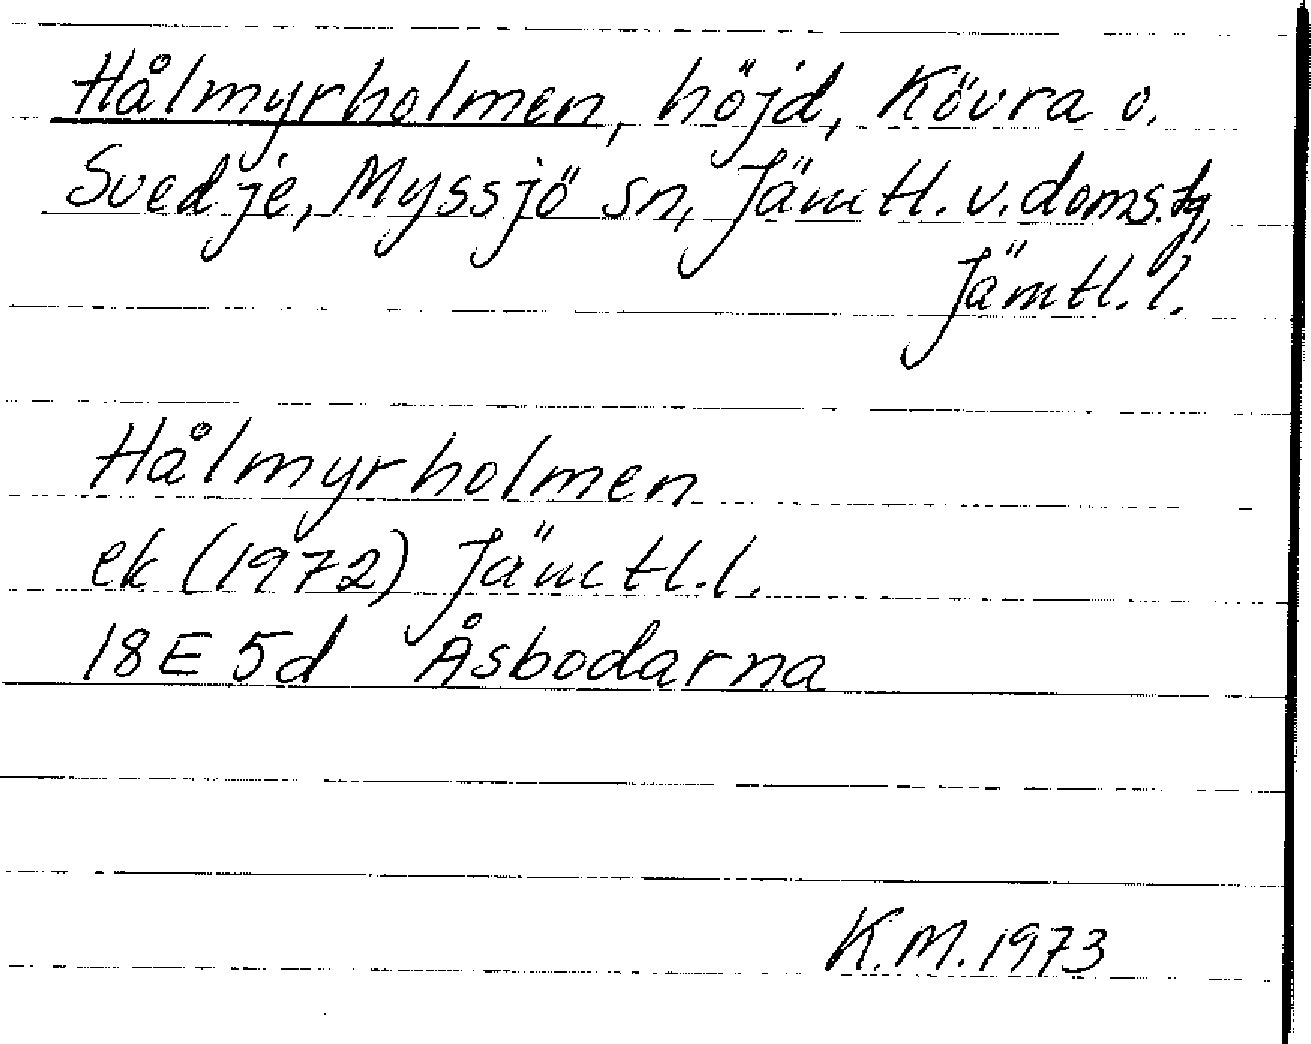 Hålmyrholmen, höjd, Kövra o.
Svedje, Myssjö sn, Jämtl. v. doms. tg,
Jämtl. l.
Hålmyrholmen
ek (1972) Jämtl. l.
18E 5d Åsbodarna
K.M. 1973